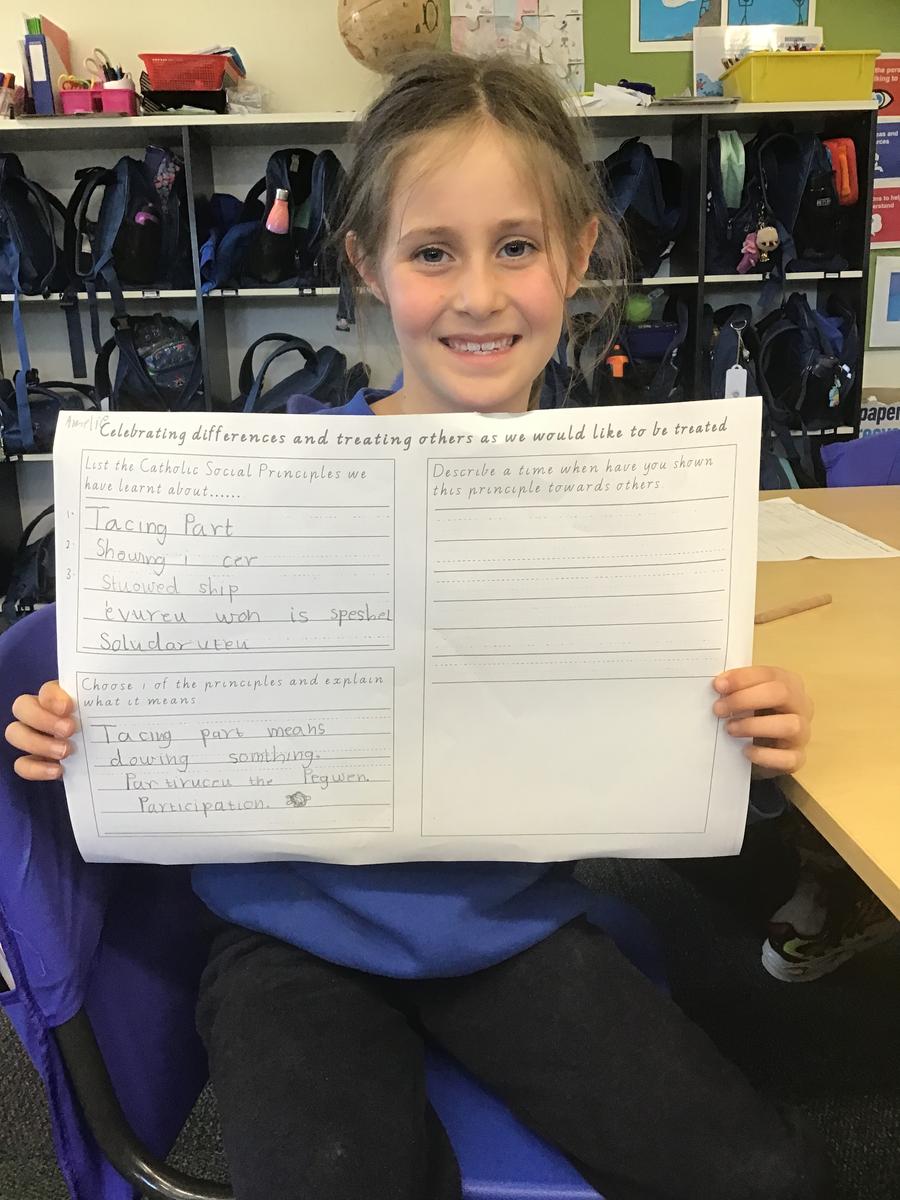 Celebrating differences and treating others as we would like to be treated
List the Catholic Social Principles we
have learnt about......
1. Tacing Part
2. Showing i cer
3. Stuowed ship
evureu won is speshel
Soludaruteu
Choose 1 of the principles and explain
what it means
Tacing part means
dowing somthing.
Partirucu the Pegwen.
Participation.
Describe a time when have you shown
this principle towards others.
paper